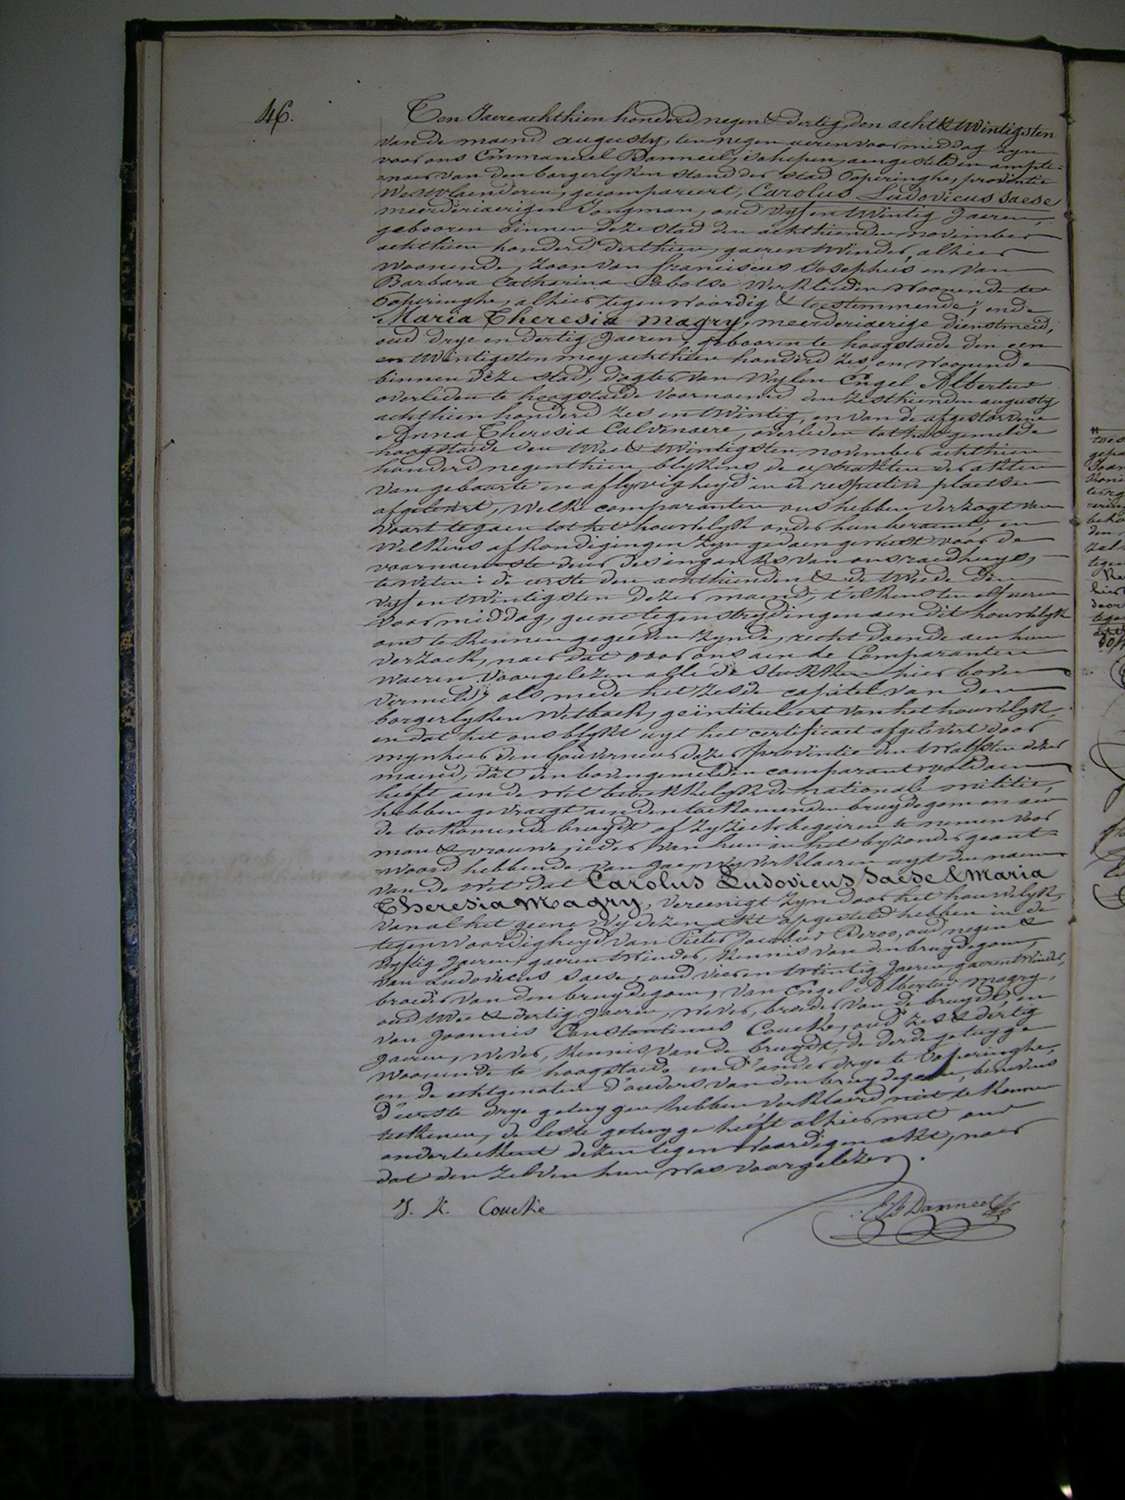 46.
Ten Jaere achthien honderd negen & dertig den acht & twintigsten
van de maend augusty, ten negen ueren voor middag zyn
voor ons Emmanuel Danneel, schepen, aengestelden ampte=
naer van den borgerlyken stand der stad Poperinghe, provintie
Westvlaenderen, gecompareert, Carolus Ludovicus Saese
meerderjaerigen Jongman, oud vyf en twintig Jaeren,
gebooren binnen deze stad den achthienden november
achthien honderd derthien, gaeren twinder, alhier
woonende, zoon van franciscus Josephus en van
Barbara Catharina Debotse werklieden woonende te
Poperinghe, alhier tegenwoordig & toestemmende; ende
Maria Theresia Magry, meerderjaerige dienstmeid,
oud drye en dertig Jaeren, gebooren te hoogstaede den een
en twintigsten mey achthien honderd zes, en woonende
binnen deze stad, dogter van wylen Engel Albertus
overleden te hoogstaede voornoemd den zesthienden augusty
achthien honderd zes en twintig, en van de afgestorvene
Anna Theresia Calvenaere, overleden tot het gemelde
hoogstaede den twee & twintigsten november achthien
honderd negenthien, blykens de extrakten der akten
van geboorte en aflyvigheyd in de respective plaetsen
afgelevert, welke comparanten ons hebben verzogt van
voort te gaen tot het houwelyk onder hun beraemt, en
welkers afkondigingen zyn gedaen geweest voor de
voornaemste deur des ingangs van ons raedhuys,
te weten: de eerste den achthienden & de tweede den
vyf en twintigsten dezer maend, telkens ten elf ueren
voor middag, geene tegenstrydingen aen dit houwelyk
ons te kennen gegeven zynde, recht doende aen hun
verzoek, naer dat door ons aen de comparanten
waeren voorgelezen alle de stukken hier boven
vermeld, als mede het zesde capitel van den
borgerlyken wetboek, geïntituleert van het houwelyk,
en dat het ons blykt uyt het certificaet afgelevert door
mynheer den Gouverneur dezer provintie den twaelfsten dezer
maend, dat den bovengemelden comparant voldaen
heeft aen de wet betrekkelyk de nationale militie,
hebben gevraegt aen den toekomenden bruydegom en aen
de toekomende bruydt of zy zich begeeren te nemen voor
man & vrouwe, ieder van hun in het byzonder geant=
woord hebbende van Jae, wy verklaeren uyt den naem
van de wet dat Carolus Ludovicus Saese & Maria
Theresia Magry, vereenigt zyn door het houwelyk,
van al het geene wy dezen akt opgesteld hebben in de
tegenwoordigheyd van Pieter Jacobus Deroo, oud negen &
vyftig Jaeren, gaeren twinder, kennis van den bruydegom,
van Ludovicus Saese, oud vier en twintig Jaeren, gaeren twinder,
broeder van den bruydegom, van Engel Albertus Magry,
oud twee & dertig Jaeren, wever, broeder van de bruydt, en
van Joannis Constantinus Couche, oud zes & dertig
Jaeren, wever, kennis van de bruydt, de derde getuyge
woonende te hoogstaede en d'ander drye te Poperinghe,
en de echtgenoten d'ouders van den bruydegom, benevens
d'eerste drye getuygen hebben verklaerd niet te konnen
teekenen, de leste getuyge heeft alhier met ons
onderteekent dezen tegenwoordigen akt, naer
dat den zelven hun was voorgelezen.
J. K. Couche
E B Danneel